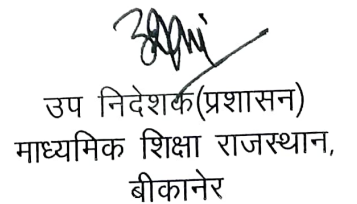 उप निदेशक(प्रशासन)
माध्यमिक शिक्षा राजस्थान,
बीकानेर